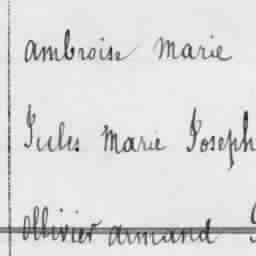 ambroise marie
Jules Marie Joseph
ollivier armand